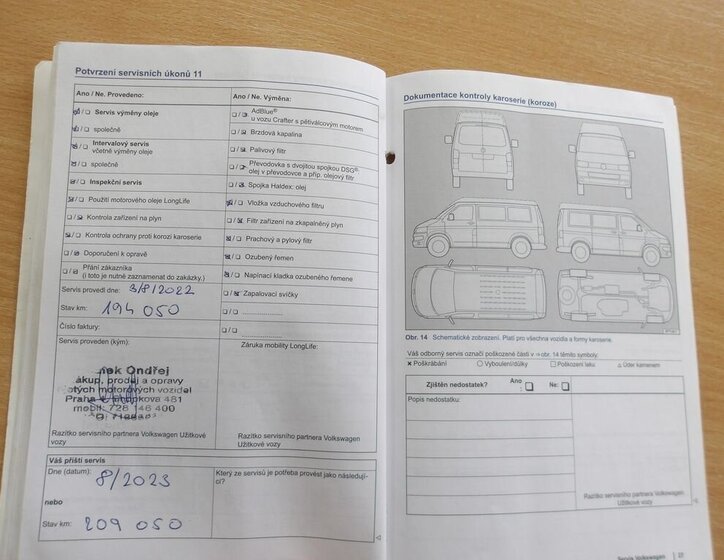 Potvrzení servisních úkonů 11
Ano / Ne. Provedeno:
Servis výměny oleje
společně
Intervalový servis
včetně výměny oleje
společně
Inspekční servis
Použití motorového oleje LongLife
Kontrola zařízení na plyn
Kontrola ochrany proti korozi karoserie
Doporučení k opravě
Přání zákazníka
(i toto je nutné zaznamenat do zakázky.)
Servis provedl dne: 3/8/2022
Stav km: 194 050
Číslo faktury:
Servis proveden (kým):
nek Ondřej
ákup, prodej a opravy
otých motorových vozidel
Praha
481
mobil: 728 146 400
Razítko servisního partnera Volkswagen Užitkové
vozy
Ano / Ne. Výměna:
AdBlue®
u vozu Crafter s pětiválcovým motorem
Brzdová kapalina
Palivový filtr
Převodovka s dvojitou spojkou DSG®:
olej v převodovce a příp. olejový filtr
Spojka Haldex: olej
Vložka vzduchového filtru
Filtr zařízení na zkapalněný plyn
Prachový a pylový filtr
Ozubený řemen
Napínací kladka ozubeného řemene
Zapalovací svíčky
Záruka mobility LongLife:
Razítko servisního partnera Volkswagen
Užitkové vozy
Váš příští servis
Dne (datum): 8/2023
nebo
Stav km: 209 050
Který ze servisů je potřeba provést jako následují-
cí?
Dokumentace kontroly karoserie (koroze)
Obr. 14 Schematické zobrazení. Platí pro všechna vozidla a formy karoserie.
Váš odborný servis označí poškozené části v ⇒ obr. 14 těmito symboly.
× Poškrábání ○ Vyboulení/důlky □ Poškození laku △ Úder kamenem
Zjištěn nedostatek? Ano: Ne:
Popis nedostatku:
Razítko servisního partnera Volkswagen
Užitkové vozy
Servis Volkswagen